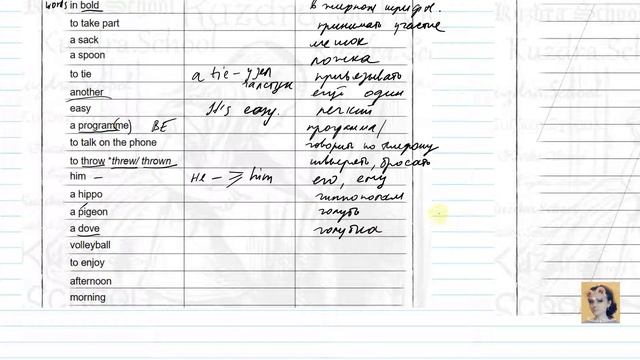 words in bold в жирном шрифт.
to take part принимать участие
a sack мешок
a spoon ложка
to tie a tie – узел галстук привязывать
another ещё один
easy It's easy. легкий
a program(me) BE программа/
to talk on the phone говорить по телефону
to throw *threw/ thrown швырять, бросать
him – не –> him его, ему
a hippo гиппопотам
a pigeon голубь
a dove голубка
volleyball
to enjoy
afternoon
morning